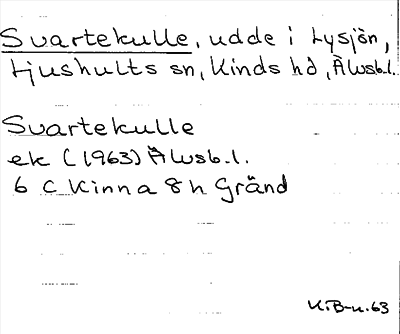 Svartekulle, udde i Lysjön,
Ljushults sn, Kinds hd, Älvsb.l.
Svartekulle
ek (1963) Älvsb.l.
6 C Kinna 8 h Gränd